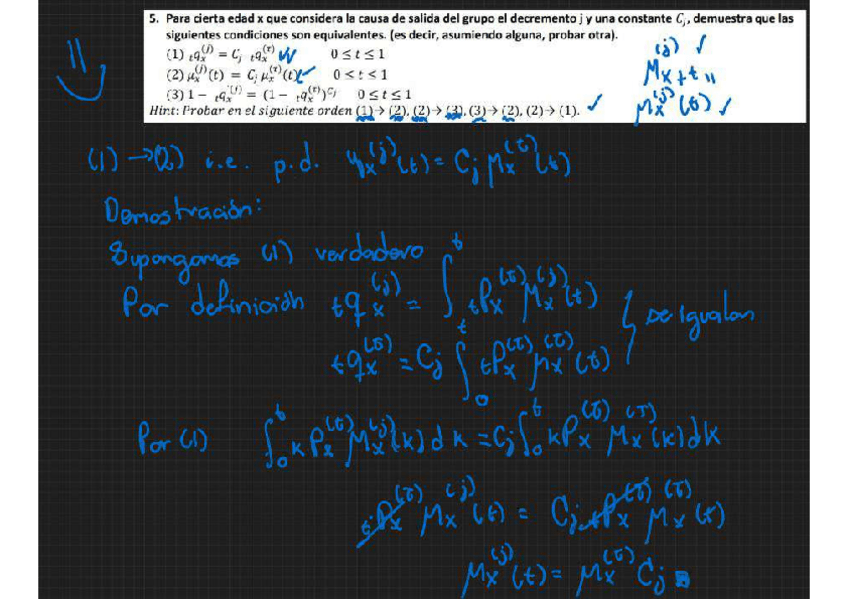 5. Para cierta edad x que considera la causa de salida del grupo el decremento j y una constante C_j, demuestra que las
siguientes condiciones son equivalentes. (es decir, asumiendo alguna, probar otra).
(1) _tq_x^(j) = C_j _tq_x^(τ) 0 ≤ t ≤ 1
(2) μ_x^(j)(t) = C_j μ_x^(τ)(t) 0 ≤ t ≤ 1
(3) 1 − _tq_x^'(j) = (1 − _tq_x^(τ))^C_j 0 ≤ t ≤ 1
Hint: Probar en el siguiente orden (1)→ (2), (2)→ (3), (3)→ (2), (2)→ (1).
μ_x+t^(j)
μ_x^(j)(t)
(1) → (2) i.e. p.d. μ_x^(j)(t) = C_j μ_x^(τ)(t)
Demostración:
Supongamos (1) verdadero
Por definición tq_x^(j) = ∫_t^t tP_x^(τ) μ_x^(j)(t)
tq_x^(τ) = C_j ∫_0^t tP_x^(τ) μ_x^(τ)(t)
se igualan
Por (1) ∫_0^t kP_x^(τ) μ_x^(j)(k)dk = C_j ∫_0^t kP_x^(τ) μ_x^(τ)(k)dk
tP_x^(τ) μ_x^(j)(t) = C_j tP_x^(τ) μ_x^(τ)(t)
μ_x^(j)(t) = μ_x^(τ) C_j